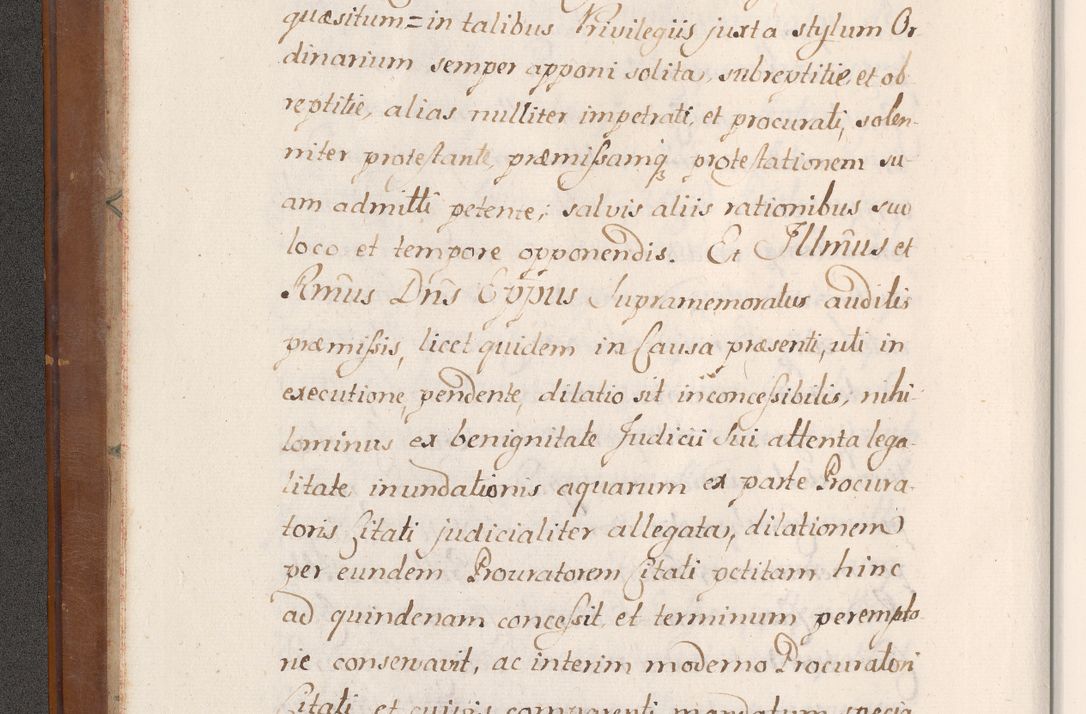 quæsitum = in talibus Privilegiis juxta stylum Or
dinarium semper apponi solita, subreptitie, et ob
reptitie, alias nulliter impetrati, et procurati, solen-
niter protestante, præmissamq protestationem su
am admitti petente; salvis aliis rationibus suo
loco et tempore opponendis. Et Illm̃us et
Rm̃us Dn̄s Eppus Supramemoratus auditis
præmissis, licet quidem in Causa præsenti, uti in
executione, pendente, dilatio sit inconcessibilis, nihi-
lominus ex benignitate Judicii sui attenta lega-
litate, inundationis aquarum ex parte Procura-
toris Citati judicialiter allegata, dilationem
per eundem Prouratorem Citati petitam hinc
ad quindenam concessit, et terminum perempto
rie conservavit, ac interim moderno Procuratori
Citati et cuivis comparenti mandatum specia